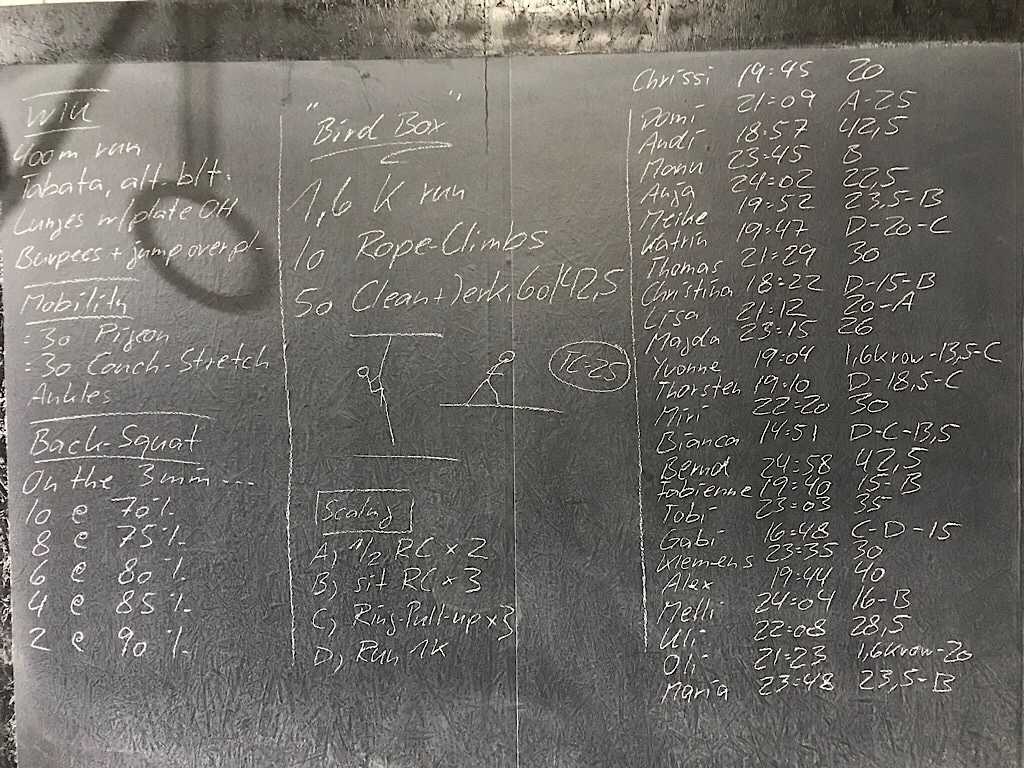 WU
400m run
Tabata, alt. blt:
Lunges w/plate OH
Burpees + jump over pl-
Mobility
:30 Pigeon
:30 Couch-Stretch
Ankles
Back-Squat
On the 3min ...
10 @ 70%
8 @ 75%
6 @ 80%
4 @ 85%
2 @ 90%
"Bird Box"
1,6 K run
10 Rope-Climbs
50 Clean+Jerk, 60/42,5
TC-25
Scaling
A) 1/2 RC x 2
B) sit RC x 3
C) Ring-Pull-up x3
D) Run 1K
Chrissi 19:45 20
Domi 21:09 A-25
Andi 18:57 42,5
Manu 23:45 B
Anja 24:02 22,5
Meike 19:52 23,5-B
Katrin 19:47 D-20-C
Thomas 21:29 30
Christina 18:22 D-15-B
Lisa 21:12 20-A
Magda 23:15 26
Yvonne 19:04 1,6k row-13,5-C
Thorsten 19:10 D-18,5-C
Miri 22:20 30
Bianca 14:51 D-C-13,5
Bernd 24:58 42,5
Fabienne 19:40 15-B
Tobi 23:03 35
Gabi 16:48 C-D-15
Klemens 23:35 30
Alex 19:44 40
Melli 24:04 16-B
Uli 22:08 28,5
Oli 21:23 1,6k row-20
Maria 23:48 23,5-B